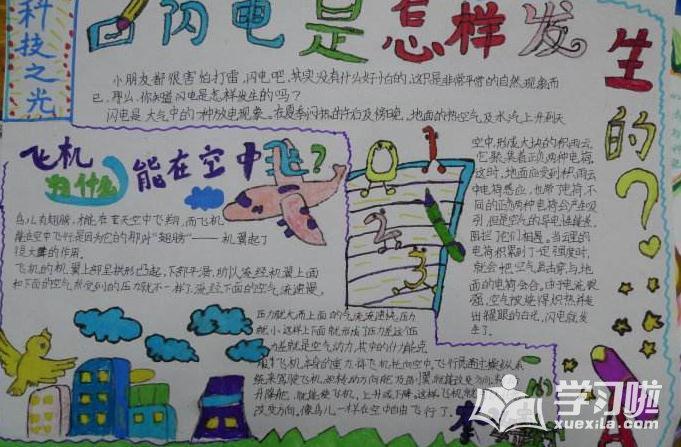 科技之光
闪电是怎样发生的？
小朋友都很害怕打雷、闪电吧，其实没有什么好怕的，这只是非常平常的自然现象而
已，那么，你知道闪电是怎样发生的吗？
闪电是大气中的一种放电现象。在夏季闷热的午后及傍晚，地面的热空气及水汽上升到天
空中，形成大块的积雨云，
它聚集着正负两种电荷，
这时，地面应受到积雨云
中电荷感应，也带电荷，不
同的正负两种电荷会产生吸
引，但是空气的导电性能差，
阻拦了它们相遇。当云里的
电荷积累到了一定强度时，
就会把空气击穿，与地
面的电荷会合。由于电流很
强，空气被烧得炽热，并发
出耀眼的白光，闪电就发
生了。
飞机
为什么
能在空中飞？
鸟儿有翅膀，才能在蓝天空中飞翔，而飞机
能在空中飞行是因为它的那对“翅膀”——机翼起了
很大的作用。
飞机的机翼上部呈拱形凸起，下部平滑，所以流经机翼上面
和下面的空气所受到的压力就不一样了，流经下面的空气流速慢，
压力就大，而上面的气流流速快，压力
就小，这样上下面就形成了压力差，这个压
力差就是空气动力，其中的升力能克
服飞机本身的重力，将飞机托向空中。飞行员通过操纵系
统来驾驶飞机，
升降舵，就能使飞机上升或下降，这样，飞机就能
改变方向，像鸟儿一样在空中自由飞行了。
1
2
3
学习啦
xuexila.com